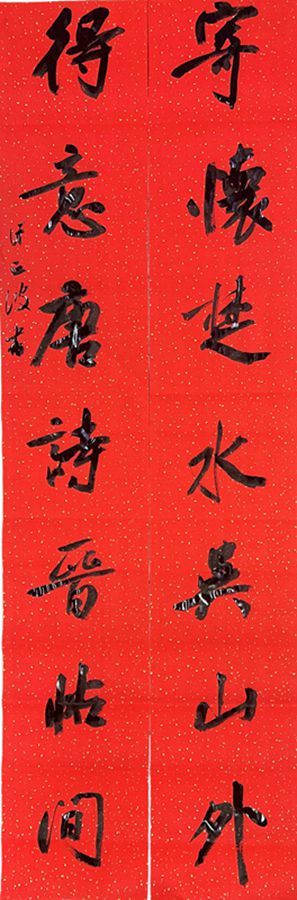 寄懷楚水吳山外
得意唐詩晉帖間
正波書